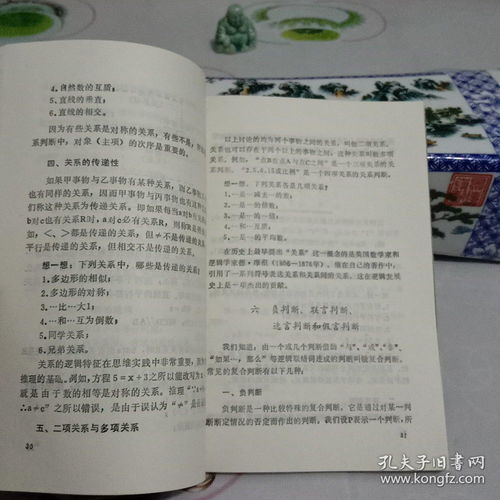 4.自然数的互质;
5.直线的垂直;
6.直线的相交。
因为有些关系是对称的关系,有些不是,所以
系判断中,对象(主项)的次序是重要的。
四、关系的传递性
如果甲事物与乙事物有某种关系,而乙事物
也有同样的关系,因而甲事物与丙事物也有
们称这种关系为传递关系。即如果每当a对b
b对c也有关系R时,a对c必有关系R,则称R
如,<、>都是传递的关系,但≠不是传递的关
平行是传递的关系,但相交不是传递的关系。
想一想:下列关系中,哪些是传递的关系?
1.多边形的相似;
2.多边形的对称;
3.…比…大1;
4.…和…互为倒数;
5.同学关系;
6.兄弟关系。
关系的逻辑特征在思维实践中非常重要,
推理的基础。例如,方程5=x+3之所以能改写为x
就是由于数的相等是对称的关系。推理“∵a≠
∴a≠c”之所以错误,是由于误认为“≠”是
五、二项关系与多项关系
30
以上讨论的均为两个事物之间的关系,叫做二项关系。
关系也可以存在于两个以上的事物之间;这种关系叫做多项
关系。例如,“点B在点A与点C之间”是一个三项关系的关
系判断。“2、5、6、15成比例”是一个四项关系的关系判断。
想一想:下列关系各是几项关系?
1.…是…的一半;
2.…是…的一倍;
3.…是…和…的和;
4.…与…互素;
5.…是…的平均数。
在历史上最早提出“关系”这一概念的是英国数学家和
逻辑学家德·摩根(1806—1876年)。他在自己的著作中,
引用了一系列符号表达关系和关系间的关系,这在逻辑发展
史上是一项杰出的贡献。
六 负判断、联言判断、
选言判断和假言判断
我们知道,由一个或几个判断借助“与”、“或”、“非”、
“如果…,那么”等逻辑联结词连成的判断叫做复合判断。
常见的复合判断有以下几种。
一、负判断
负判断是一种比较特殊的复合判断,它是通过对某一判
断断定情况的否定而作出的判断。我们设P表示一个判断,所
31
孔夫子旧书网
www.kongfz.com